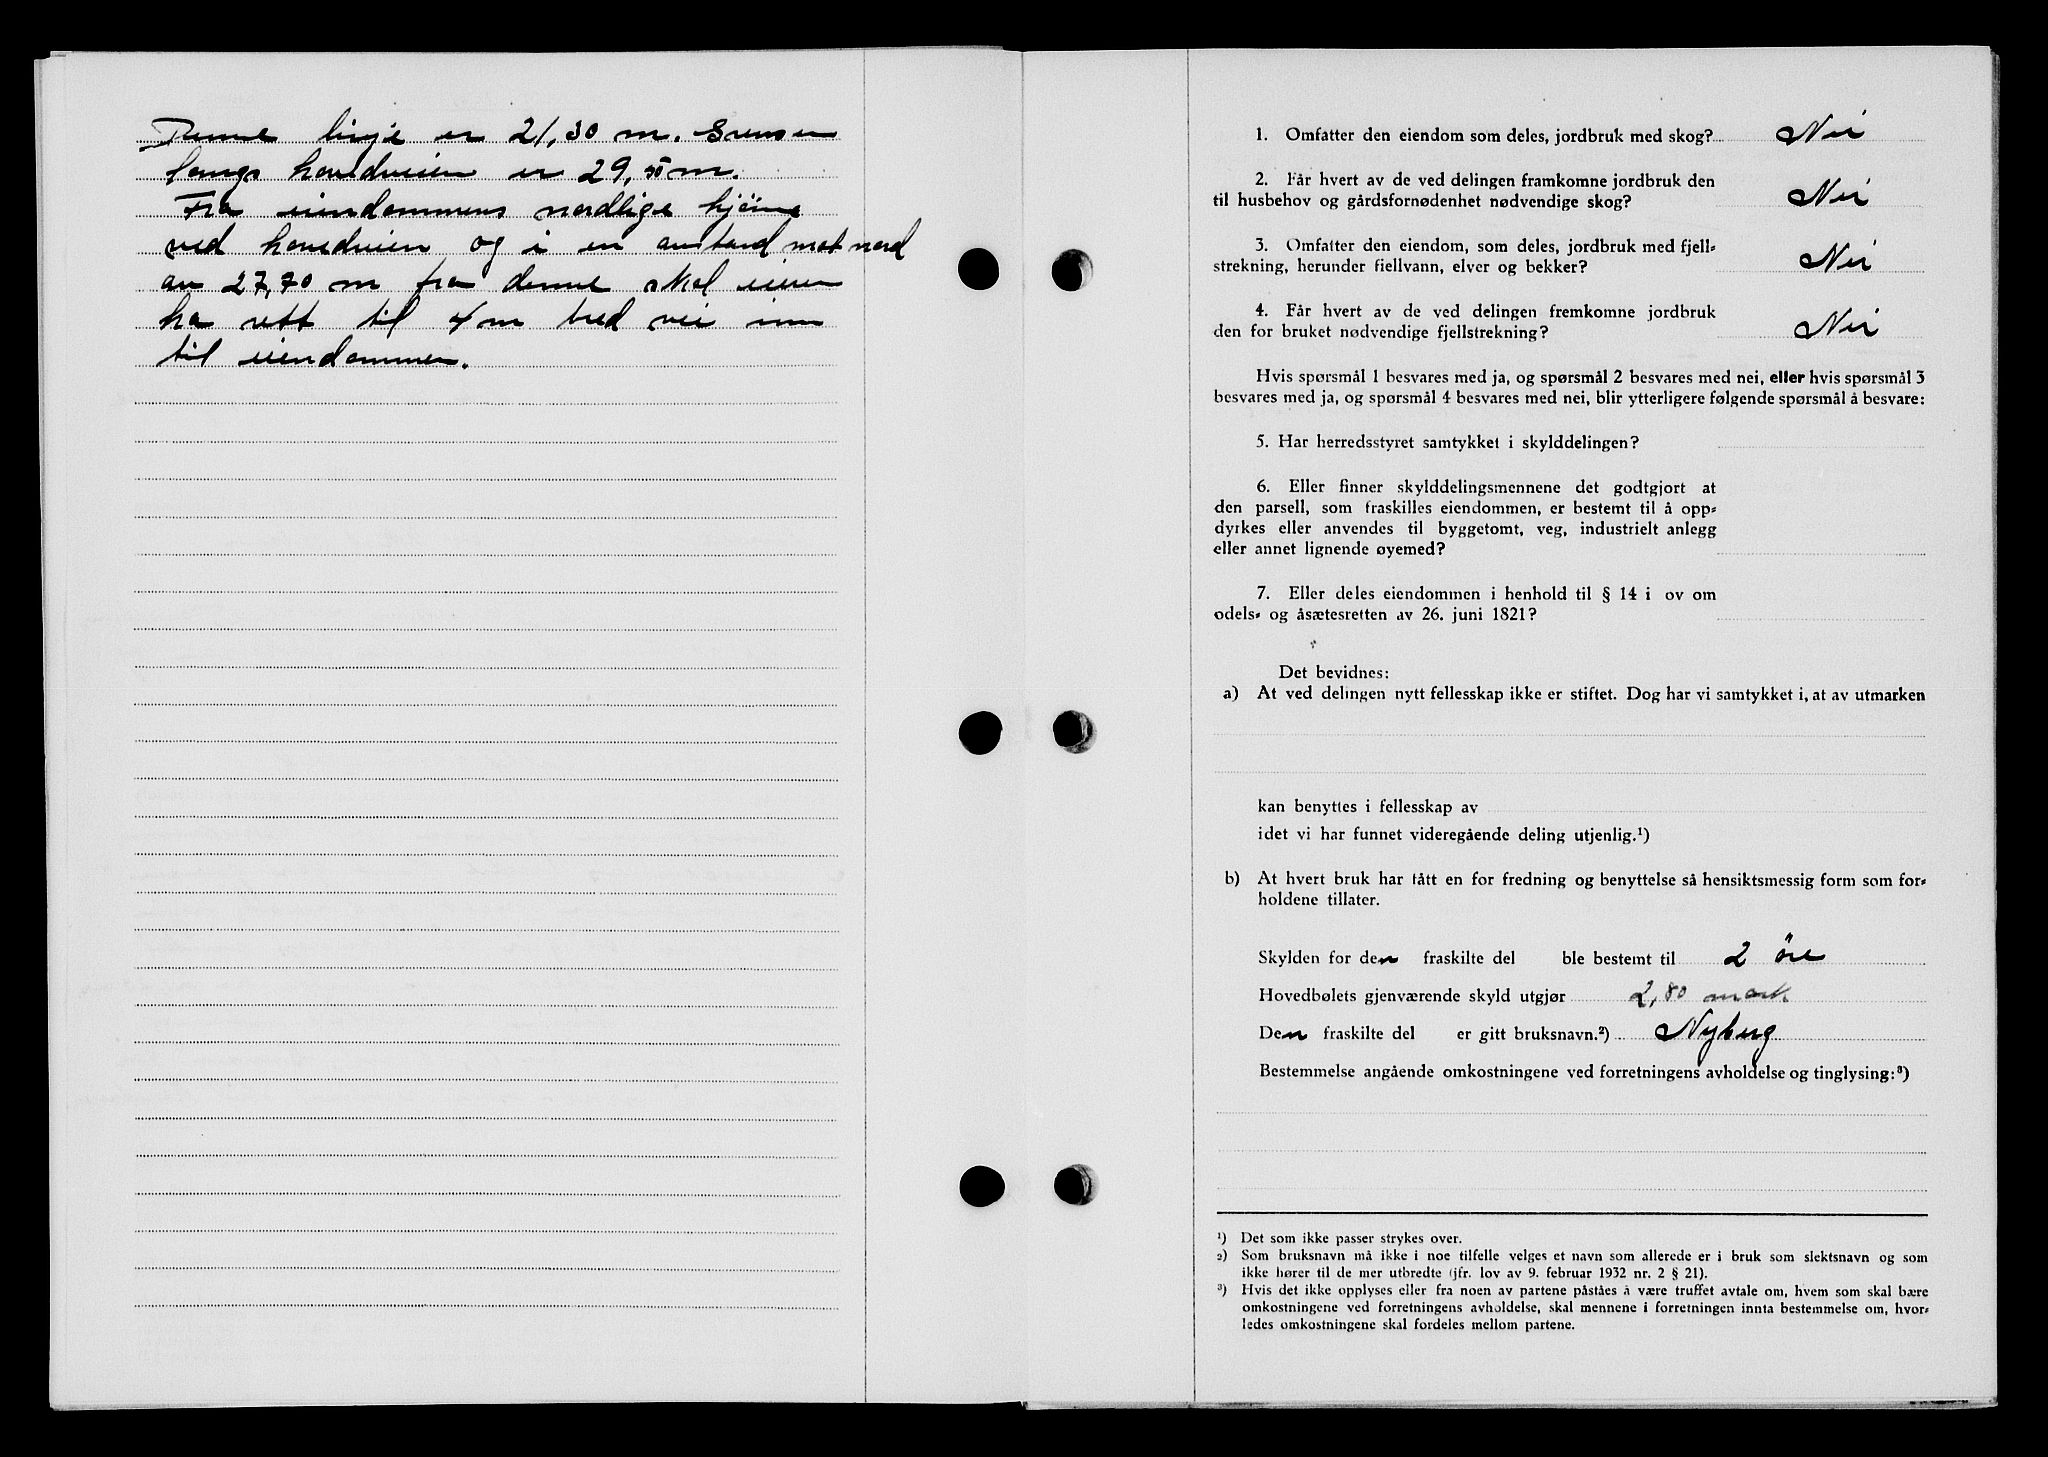 Denne linje er 21,30 m. Grensen
langs hovedveien er 29, m.
Fra eiendommens nordlige hjørne
ved hovedveien og i en avstand mot nord
av 27,70 m fra denne skal eieren
ha rett til 4 m bred vei inn
til eiendommen.
1. Omfatter den eiendom som deles, jordbruk med skog? Nei
2. Får hvert av de ved delingen framkomne jordbruk den
til husbehov og gårdsfornødenhet nødvendige skog? Nei
3. Omfatter den eiendom, som deles, jordbruk med fjell-
strekning, herunder fiellvann, elver og bekker? Nei
4. Får hvert av de ved delingen fremkomne jordbruk
den for bruket nødvendige fjellstrekning? Nei
Hvis spørsmål 1 besvares med ja, og spørsmål 2 besvares med nei, eller hvis spørsmål 3
besvares med ja, og spørsmål 4 besvares med nei, blir ytterligere følgende spørsmål å besvare:
5. Har herredsstyret samtykket i skylddelingen?
6. Eller finner skylddelingsmennene det godtgjort at
den parsell, som fraskilles eiendommen, er bestemt til å opp-
dyrkes eller anvendes til byggetomt, veg, industrielt anlegg
eller annet lignende øyemed?
7. Eller deles eiendommen i henhold til § 14 i ov om
odels- og åsætesretten av 26. juni 1821?
Det bevidnes:
a) At ved delingen nytt fellesskap ikke er stiftet. Dog har vi samtykket i, at av utmarken
kan benyttes i fellesskap av
idet vi har funnet videregående deling utjenlig.¹)
b) At hvert bruk har fått en for fredning og benyttelse så hensiktsmessig form som for-
holdene tillater.
Skylden for den fraskilte del ble bestemt til 2 öre
Hovedbølets gjenværende skyld utgjør 2,80 mark
Den fraskilte del er gitt bruksnavn.²) Nyberg
Bestemmelse angående omkostningene ved forretningens avholdelse og tinglysing:³)
¹) Det som ikke passer strykes over.
²) Som bruksnavn må ikke i noe tilfelle velges et navn som allerede er i bruk som slektsnavn og som
ikke hører til de mer utbredte (jfr. lov av 9. februar 1932 nr. 2 § 21).
³) Hvis det ikke opplyses eller fra noen av partene påståes å være truffet avtale om, hvem som skal bære
omkostningene ved forretningens avholdelse, skal mennene i forretningen innta bestemmelse om, hvor-
ledes omkostningene skal fordeles mellom partene.